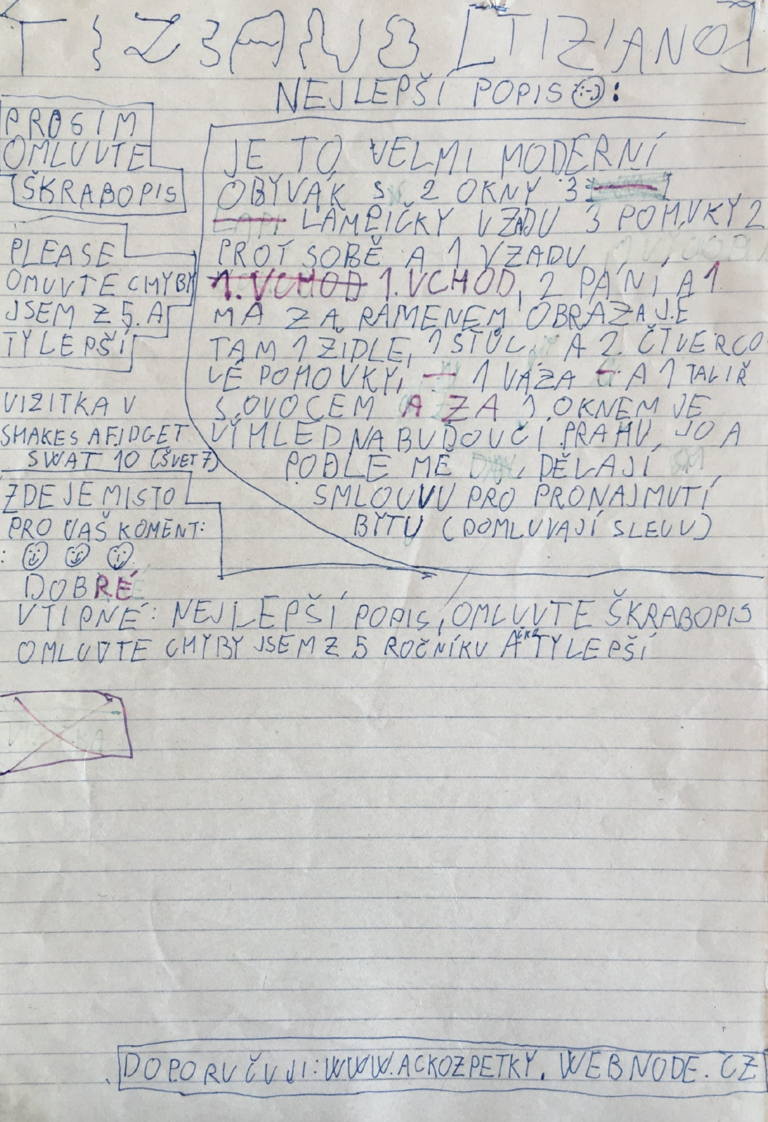 TIZIANO [TIZIANO]
NEJLEPŠÍ POPIS :
PROSIM
OMLUVTE
ŠKRABOPIS
PLEASE
OMUVTE CHYBY
JSEM Z 5.A
TYLEPŠÍ
VIZITKA V
SHAKES AFIDGET
SWAT 10 (SVET 7)
ZDE JE MISTO
PRO VAŠ KOMENT:
:
DOBRÉ
JE TO VELMI MODERNÍ
OBÝVÁK S 2 OKNY 3
LAMPIČKY VZADU 3 POHVKY 2
PROT SOBĚ A 1 VZADU
1. VCHOD 1. VCHOD, 2 PÁNI A 1
MÁ ZA RAMENEM OBRAZAJE
TAM 1 ŽIDLE, 1 STŮL, A 2 ČTVERCO
VÉ POHOVKY, 1 VÁZA A 1 TALIŘ
S OVOCEM A ZA 1 OKNEM JE
VÝHLED NA BUDOUCÍ PRAHU, JO A
PODLE MĚ DĚLAJÍ
SMLOUVU PRO PRONAJMUTÍ
BYTU (DOMLUVAJÍ SLEVU)
VTIPNÉ: NEJLEPŠÍ POPIS, OMLUVTE ŠKRABOPIS
OMLUVTE CHYBY JSEM Z 5 ROČNÍKU AčKa TYLEPŠÍ
DOPORUČUJI: WWW.ACKOZPETKY.WEBNODE.CZ